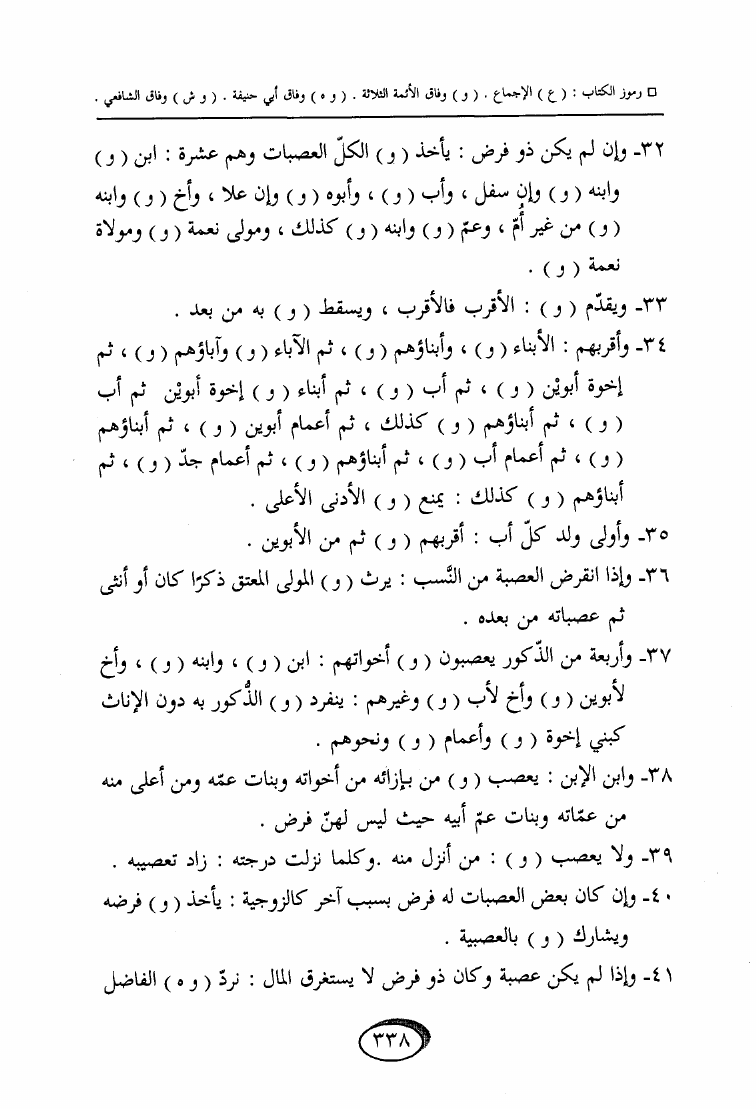 □ رموز الكتاب : ( ع ) الإجماع . ( و ) وفاق الأئمة الثلاثة . ( و ه ) وفاق أبي حنيفة . ( و ش ) وفاق الشافعي .
٣٢- وإن لم يكن ذو فرض : يأخذ ( و ) الكلّ العصبات وهم عشرة : ابن ( و )
وابنه ( و ) وإن سفل ، وأب ( و ) ، وأبوه ( و ) وإن علا ، وأخ ( و ) وابنه
( و ) من غير أُمّ ، وعمّ ( و ) وابنه ( و ) كذلك ، ومولى نعمة ( و ) ومولاة
نعمة ( و ) .
٣٣- ويقدّم ( و ) : الأقرب فالأقرب ، ويسقط ( و ) به من بعد .
٣٤- وأقربهم : الأبناء ( و ) ، وأبناؤهم ( و ) ، ثم الآباء ( و ) وآباؤهم ( و ) ، ثم
إخوة أبويْن ( و ) ، ثم أب ( و ) ، ثم أبناء ( و ) إخوة أبويْن ثم أب
( و ) ، ثم أبناؤهم ( و ) كذلك ، ثم أعمام أبوين ( و ) ، ثم أبناؤهم
( و ) ، ثم أعمام أب ( و ) ، ثم أبناؤهم ( و ) ، ثم أعمام جدّ ( و ) ، ثم
أبناؤهم ( و ) كذلك : يمنع ( و ) الأدنى الأعلى .
٣٥- وأولى ولد كلّ أب : أقربهم ( و ) ثم من الأبوين .
٣٦- وإذا انقرض العصبة من النَّسب : يرث ( و ) المولى المعتق ذكرًا كان أو أنثى
ثم عصباته من بعده .
٣٧- وأربعة من الذكور يعصبون ( و ) أخواتهم : ابن ( و ) ، وابنه ( و ) ، وأخ
لأبوين ( و ) وأخ لأب ( و ) وغيرهم : ينفرد ( و ) الذُّكور به دون الإناث
كبني إخوة ( و ) وأعمام ( و ) ونحوهم .
٣٨- وابن الإبن : يعصب ( و ) من بإزائه من أخواته وبنات عمّه ومن أعلى منه
من عمّاته وبنات عمّ أبيه حيث ليس لهنّ فرض .
٣٩- ولا يعصب ( و ) : من أنزل منه .وكلما نزلت درجته : زاد تعصيبه .
٤٠- وإن كان بعض العصبات له فرض بسبب آخر كالزوجية : يأخذ ( و ) فرضه
ويشارك ( و ) بالعصبية .
٤١- وإذا لم يكن عصبة وكان ذو فرض لا يستغرق المال : نردّ ( و ه ) الفاضل
٣٣٨